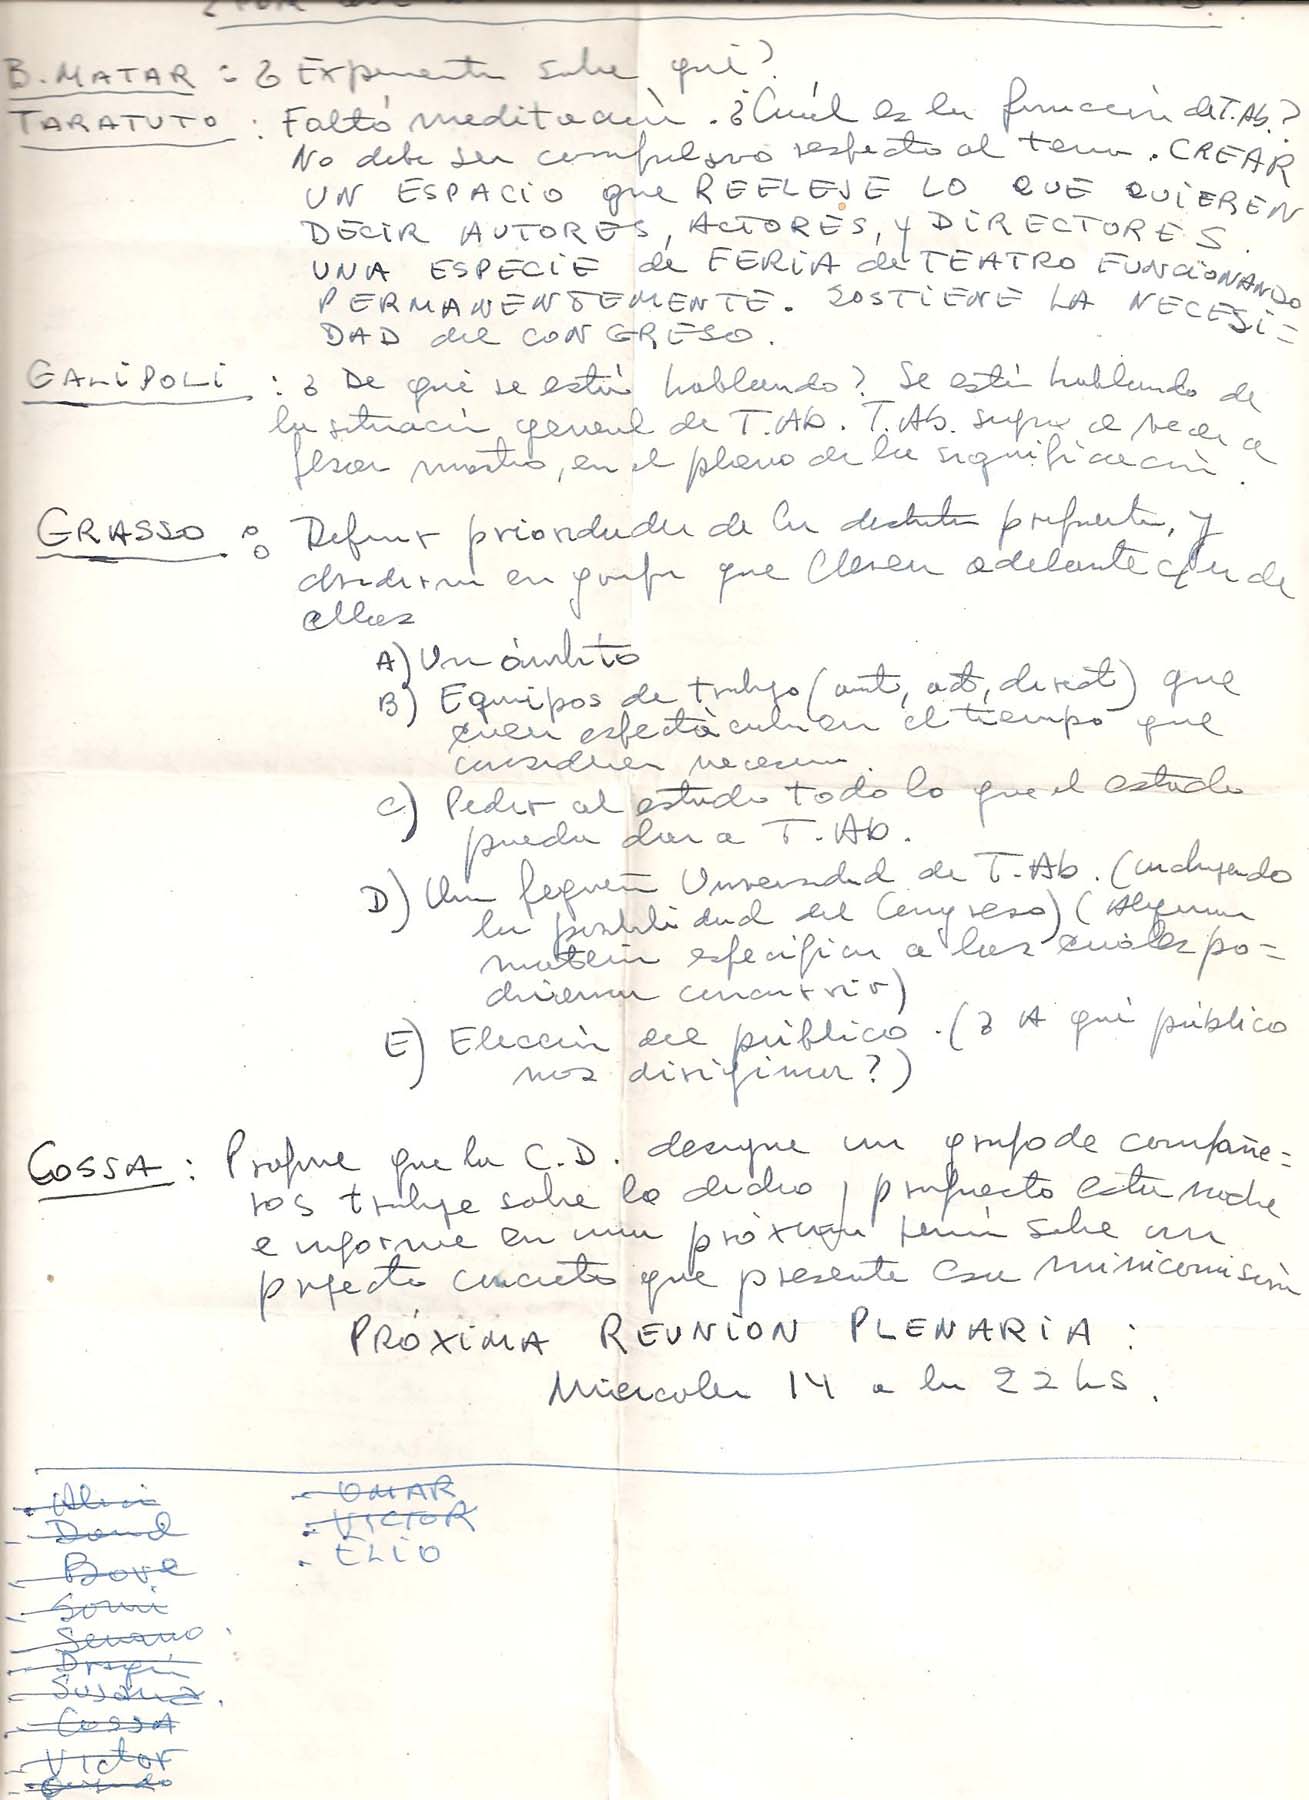 ¿POR QUÉ
B. MATAR : ¿Experimentar sobre qué?
TARATUTO : Faltó meditación. ¿Cuál es la función de T. Ab.?
No debe ser compulsivo respecto al tema. CREAR
UN ESPACIO que REFLEJE LO QUE QUIEREN
DECIR AUTORES, ACTORES, y DIRECTORES.
UNA ESPECIE de FERIA de TEATRO FUNCIONANDO
PERMANENTEMENTE. SOSTIENE LA NECESI=
DAD del CONGRESO.
GALIPOLI : ¿De qué se está hablando? Se está hablando de
la situación general de T. Ab. T. Ab. sigue a pesar
nuestro, en el plano de la significación.
GRASSO : Definir prioridades de las distintas propuestas, y
dividirnos en grupos que lleven adelante c/u de
ellas
A) Un ámbito
B) Equipos de trabajo (aut, act, direct) que
creen espectáculos en el tiempo que
consideren necesario.
C) Pedir al estado todo lo que el estado
pueda dar a T. Ab.
D) Una pequeña Universidad de T. Ab. (incluyendo
la posibilidad del Congreso) (Algunas
materias específicas a las cuales po=
dríamos concurrir)
E) Elección del público. (¿A qué público
nos dirigimos?)
COSSA : Propone que la C.D. designe un grupo de compañe=
ros trabaje sobre lo dicho y propuesto esta noche
e informe en una próxima reunión sobre un
proyecto concreto que presente esa minicomisión
PRÓXIMA REUNION PLENARIA :
Miércoles 14 a las 22 hs.
- OMAR
- VICTOR
- ELIO
- Bove
- Somi
- Serrano
- Dragún
- Susana
- Cossa
- Victor